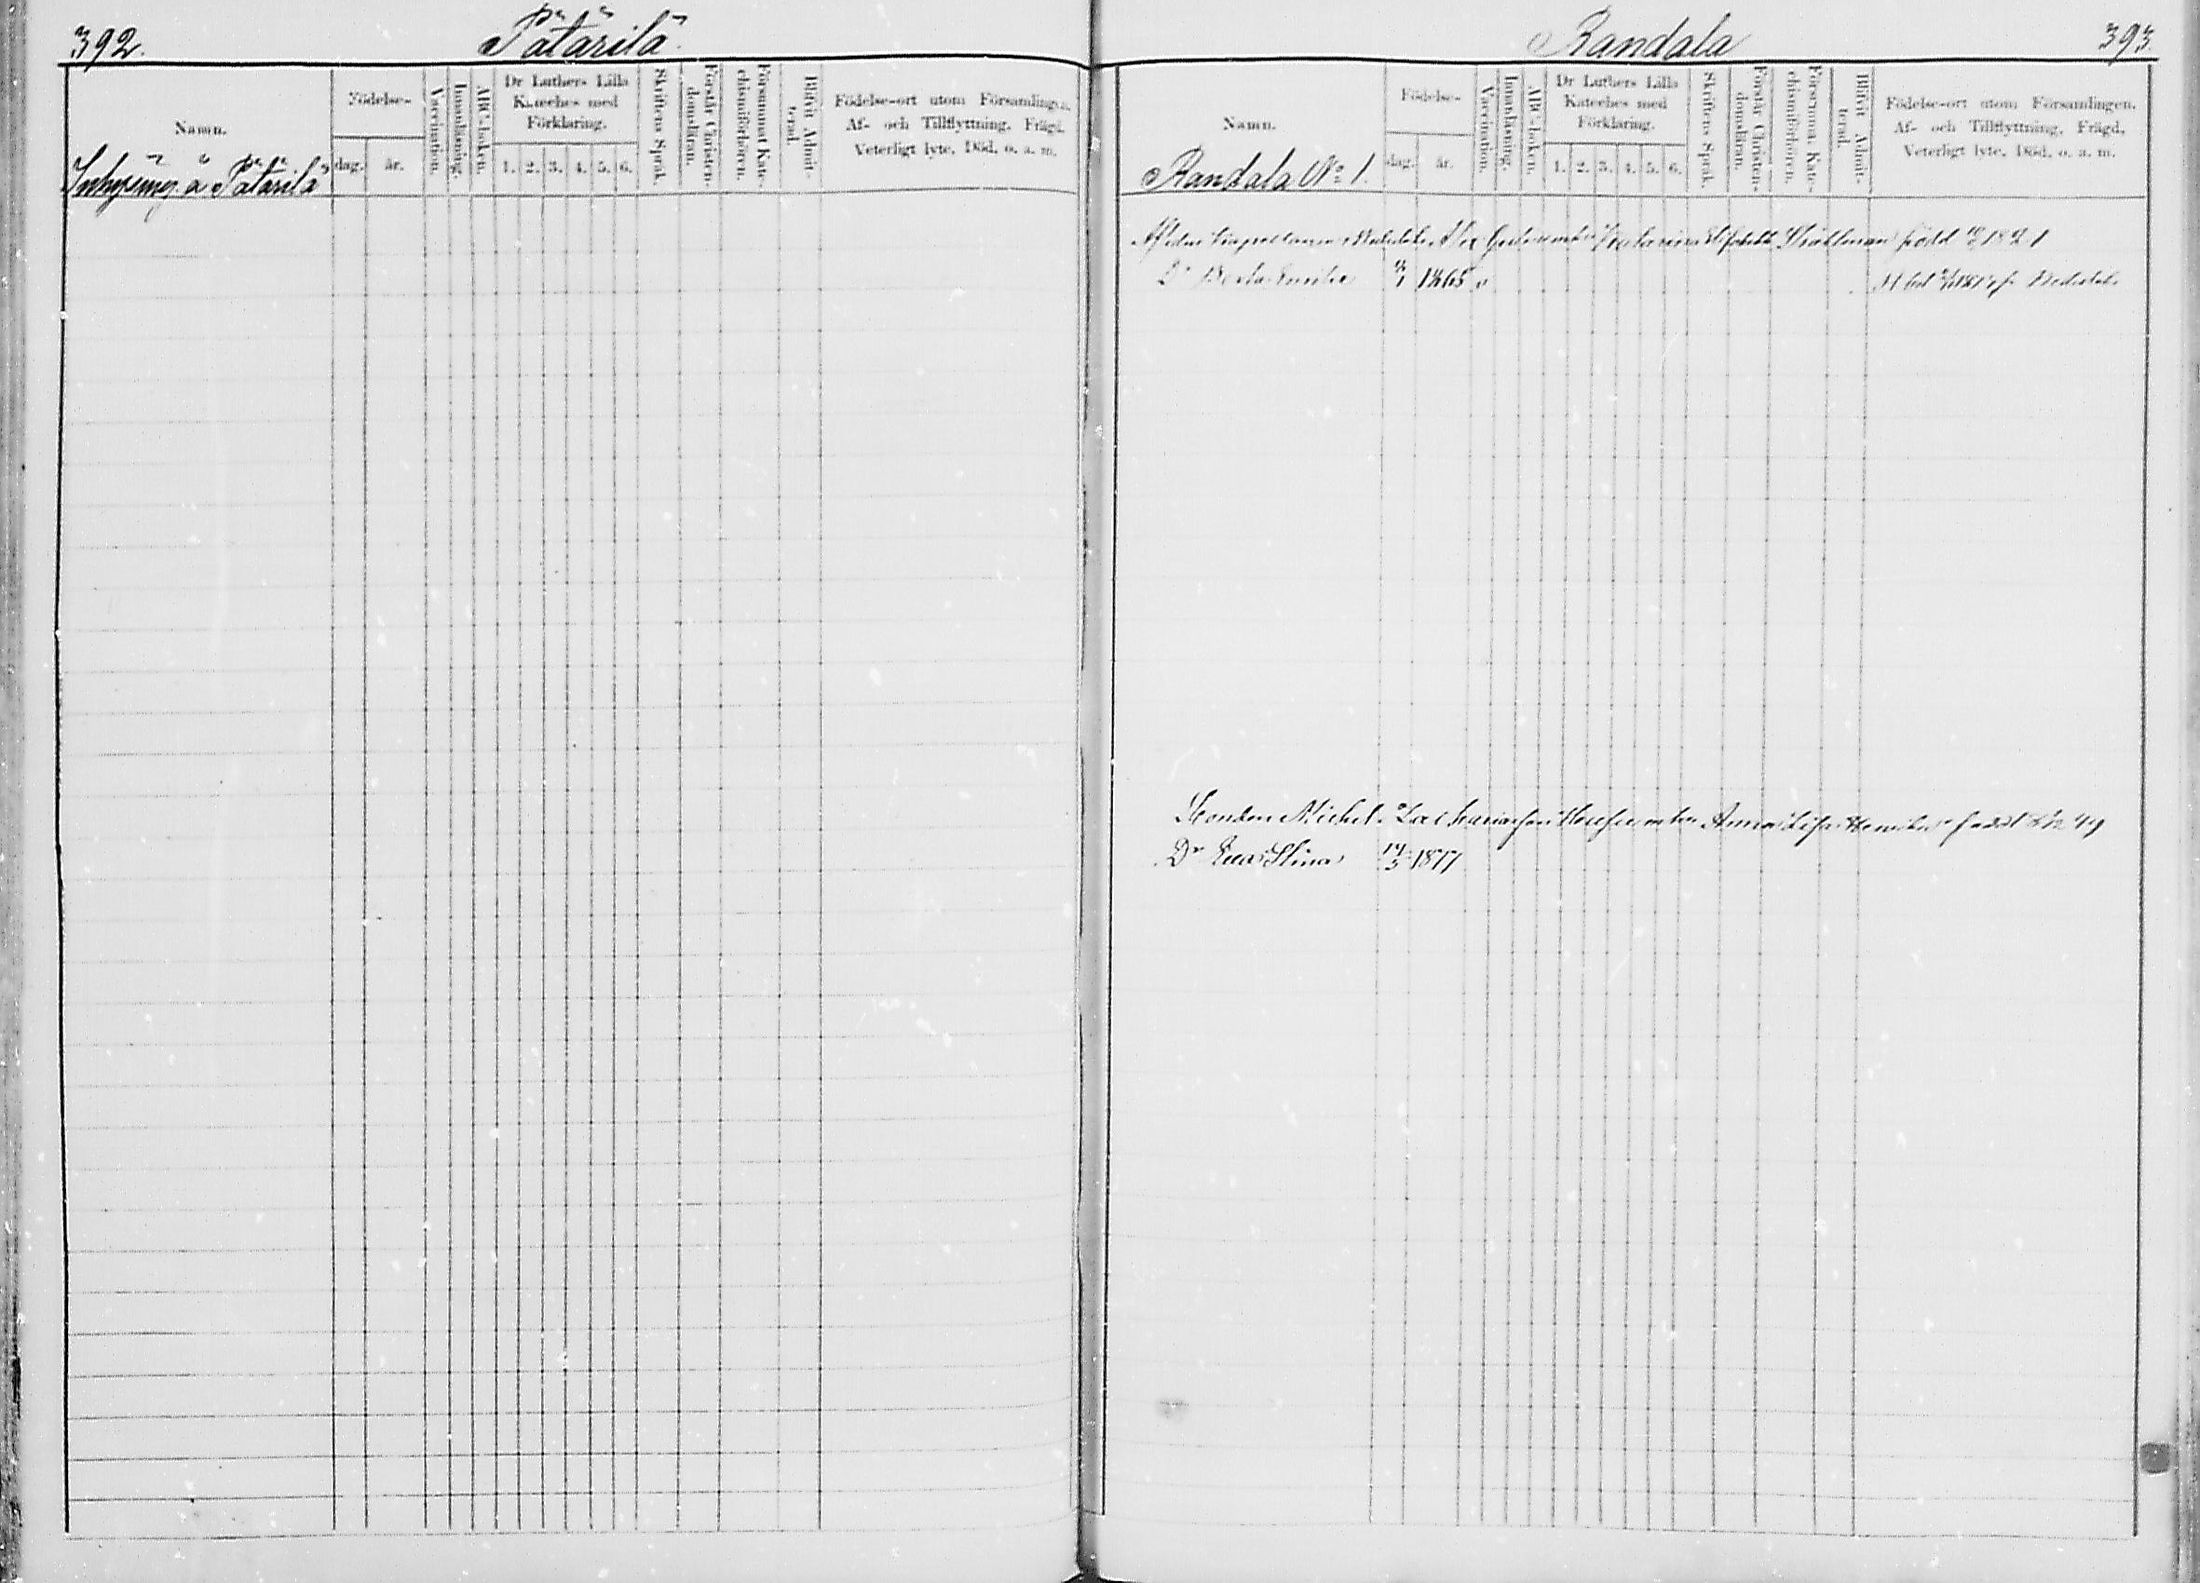 392.
Pätärilä
Namn.
Födelse-
dag.
år.
Vaccination.
Innanläsning.
ABC-boken.
Dr Luthers Lilla
Kateches med
Förklaring.
1. 2. 3. 4. 5. 6.
Skriftens Språk.
Förstår Christen-
domsläran.
Försummat Kate-
chismiförhören.
Blifvit Admit-
terad.
Födelse-ort utom Församlingen.
Af- och Tillflyttning. Frägd.
Veterligt lyte. Död. o. a. m.
Inhysing. å Pätärilä
Randala
393.
Namn.
Födelse-
dag.
år.
Vaccination.
Innanläsning.
ABC-boken.
Dr Luthers Lilla
Kateches med
Förklaring.
1. 2. 3. 4. 5. 6.
Skriftens Språk.
Förstår Christen-
domsläran.
Försummat Kate-
chismiförhören.
Blifvit Admit-
terad.
Födelse-ort utom Församlingen.
Af- och Tillflyttning. Frägd.
Veterligt lyte. Död. o. a. m.
Randala No 1.
Af Elisabeth född 1821
Dr 1865
Michel Anna Lisa född
Dr Eva Stina 14/3 1877